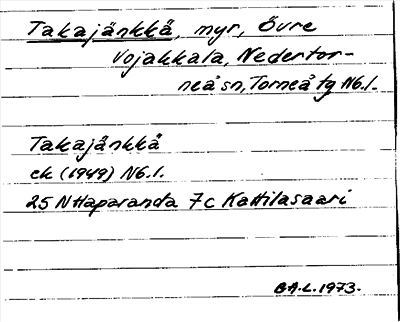 Takajänkkä, myr, Övre
Vojakkala, Nedertor-
neå sn, Torneå tg Nb.l.
Takajänkkä
ek (1949) Nb.l.
25 N Haparanda 7c Kattilasaari
G.A.L. 1973.